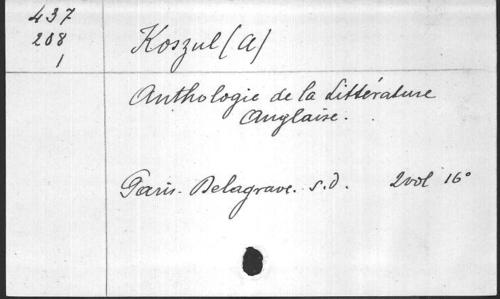 437
208
1
Koszul (A)
Anthologie de la Littérature
Anglaise.
Paris. Delagrave. s.d. 2 vol 16°